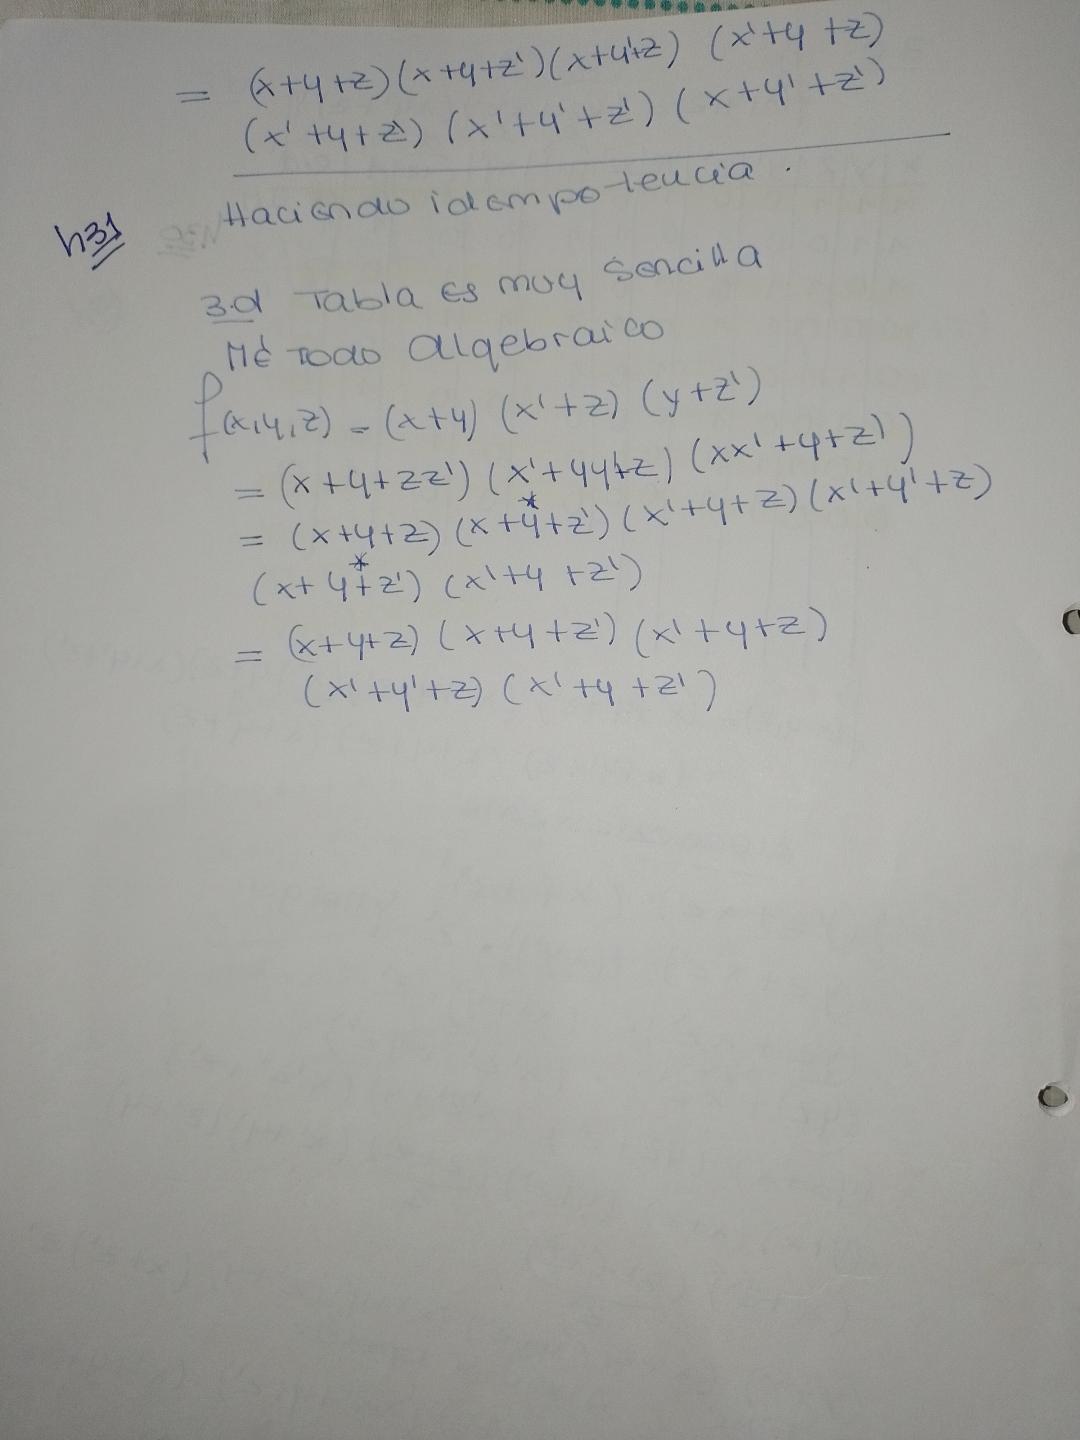 = (x+y+z)(x+y+z')(x+y'+z) (x'+y+z)
(x'+y+z') (x'+y'+z') (x+y'+z')
Haciendo idempotencia.
h31
3.d Tabla es muy sencilla
Método algebraico
f(x,y,z) = (x+y) (x'+z) (y+z')
= (x+y+zz') (x'+yy'+z) (xx'+y+z')
= (x+y+z) (x+y*+z') (x'+y+z) (x'+y'+z)
(x+y*+z') (x'+y+z')
= (x+y+z) (x+y+z') (x'+y+z)
(x'+y'+z) (x'+y+z')